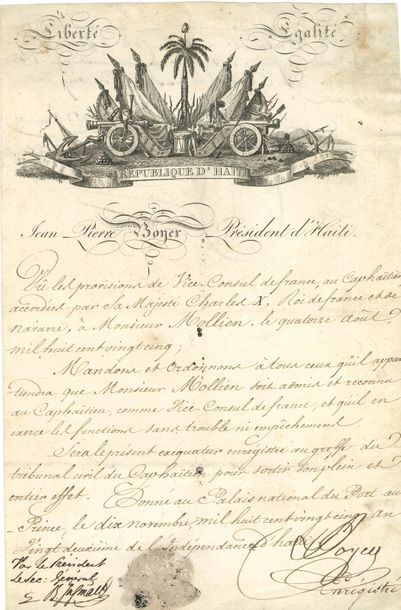 Liberté Egalité
REPUBLIQUE D'HAITI
Jean Pierre Boyer Président d'Haïti.
Vu les provisions de Vice-Consul de france, au Caphaïtien
accordées par sa Majesté Charles X, Roi de france et de
navare, à Monsieur Mollien, le quatorze aout
mil huit cent vingt cinq.
Mandons et Ordonnons à tous ceux qu'il appar
tiendra que Monsieur Mollien soit admis et reconnu
au Caphaïtien, comme Vice Consul de france, et qu'il en
exerce les fonctions sans trouble ni impêchement.
Sera le présent exequatur enregistré au greffe du
tribunal civil du Caphaïtien, pour sortir son plein et
entier effet. Donné au Palais national du Port-au
Prince, le dix novembre, mil huit cent vingt cinq, an
Vingt deuxième de l'Indépendance d'haïti.
Boyer
Par le Président
Le Sec: Général
Enrégistré